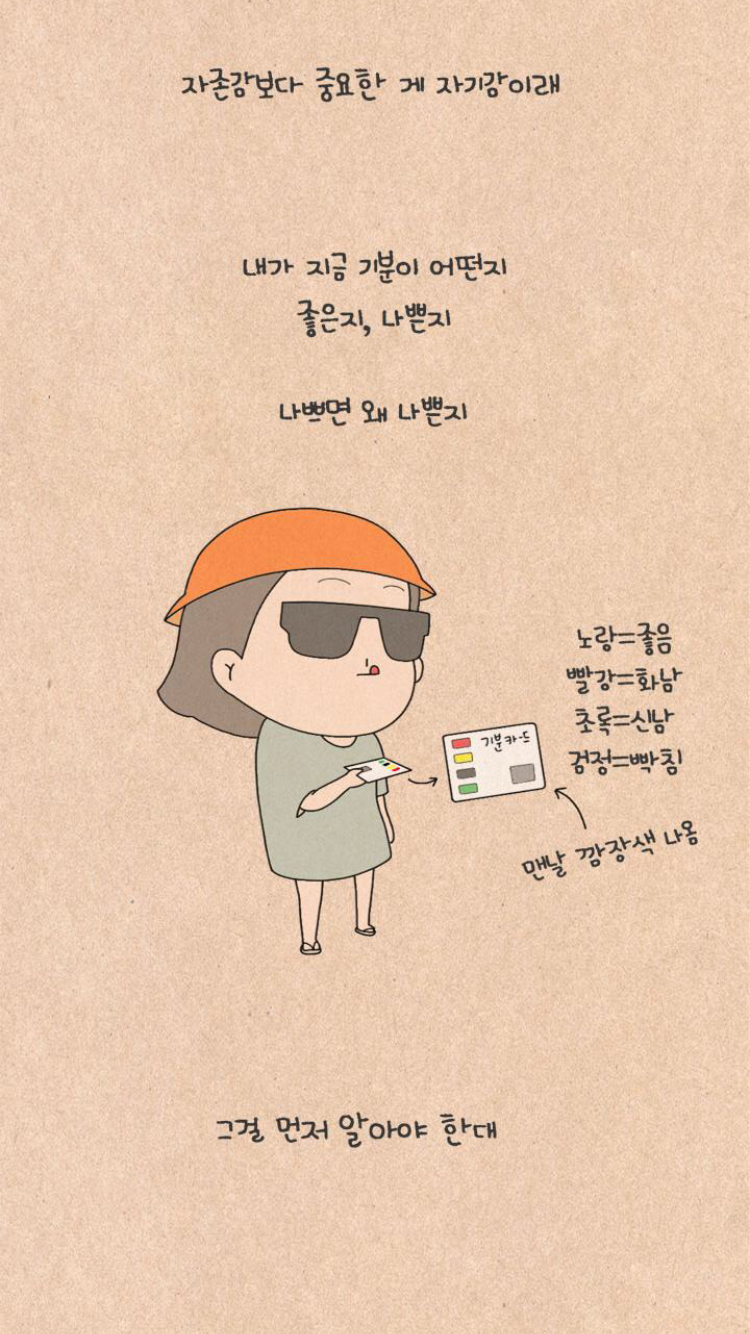 자존감보다 중요한 게 자기감이래
내가 지금 기분이 어떤지
좋은지, 나쁜지
나쁘면 왜 나쁜지
노랑=좋음
빨강=화남
초록=신남
검정=빡침
기분카드
맨날 깜장색 나옴
그걸 먼저 알아야 한대